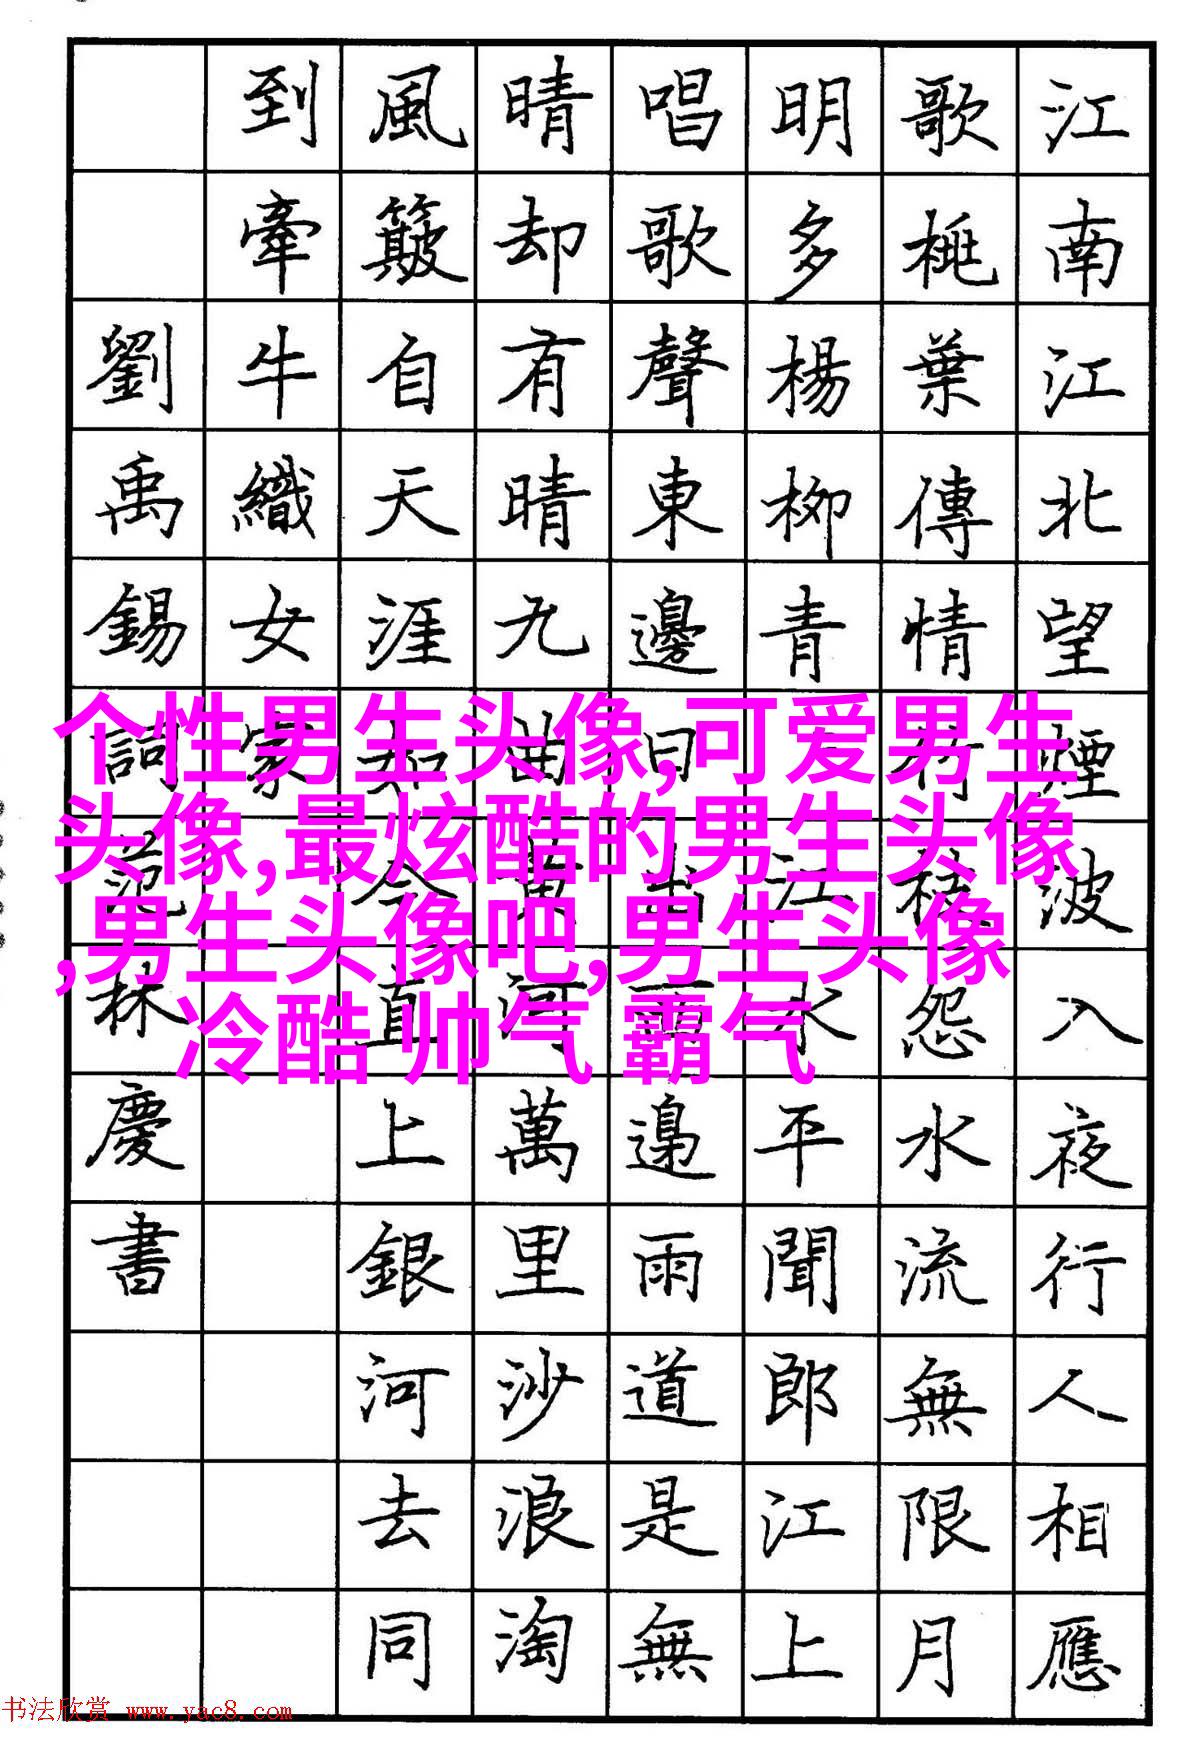 江南江北望煙波入夜行人相應
歌桃葉傳情竹枝怨水流無限月
明多楊柳青江水平聞郎江上
唱歌聲東邊日出西邊雨道是無
晴却有晴九曲黃河萬里沙浪淘
風簸自天涯如今直上銀河去同
到牽牛織女家
劉禹錫詞范林慶書
个性男生头像,可爱男生
头像,最炫酷的男生头像
,男生头像吧,男生头像
冷酷 帅气 霸气
书法欣赏 www.yac8.com